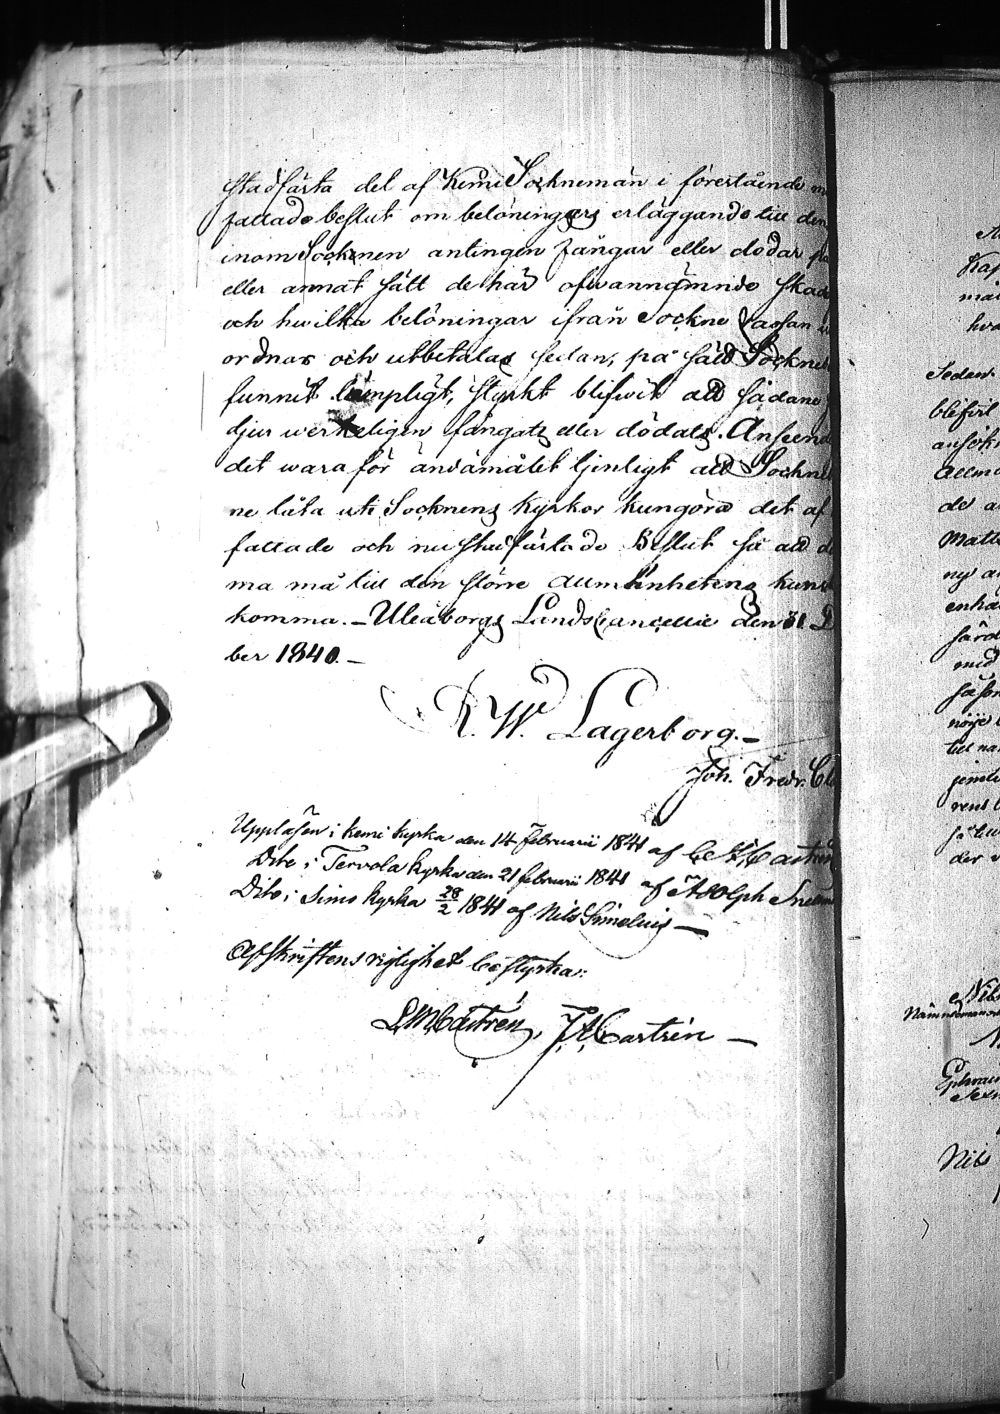 stadfästa det af Kemi Socknemän i förestående
fattade beslut om belöningars erläggande till den
inom Socknen antingen fångar eller dödar på
eller annat sätt de här ofvannämnde skad
och hwilka belöningar ifrån Sockne Cassan
ordnas och utbetalas sedan, på sätt Sockne
funnit lämpligt, styrkt blifwit att sådane
djur werkeligen fångats eller dödats. Anseend
det wara för ändamålet tjenligt att Sockne
ne låta uti Socknens Kyrkor kungöra det af
fattade och nu stadfästade Beslut så att d
ma må till den större allmänhetens kun
komma. – Uleåborgs LandsCancellie den 31 D
ber 1840. –
R. W. Lagerborg. –
Joh. Fredr. Cl
Uppläsen i Kemi kyrka den 14 februarii 1841 af
Dito i Tervola kyrka den 21 februarii 1841 af Adolph Snellm
Dito i Simo kyrka 28/2 1841 af Nils Simelius –
Afskriftens riglighet bestyrka:
Castrén, J A Castrén –
Kap
hva
Sedan
blefvit
ansökn
Allmo
de a
Matt
ny a
enha
särd
med
såson
nöije
till na
der
Nils
Nämndeman
Ephrai
Nils